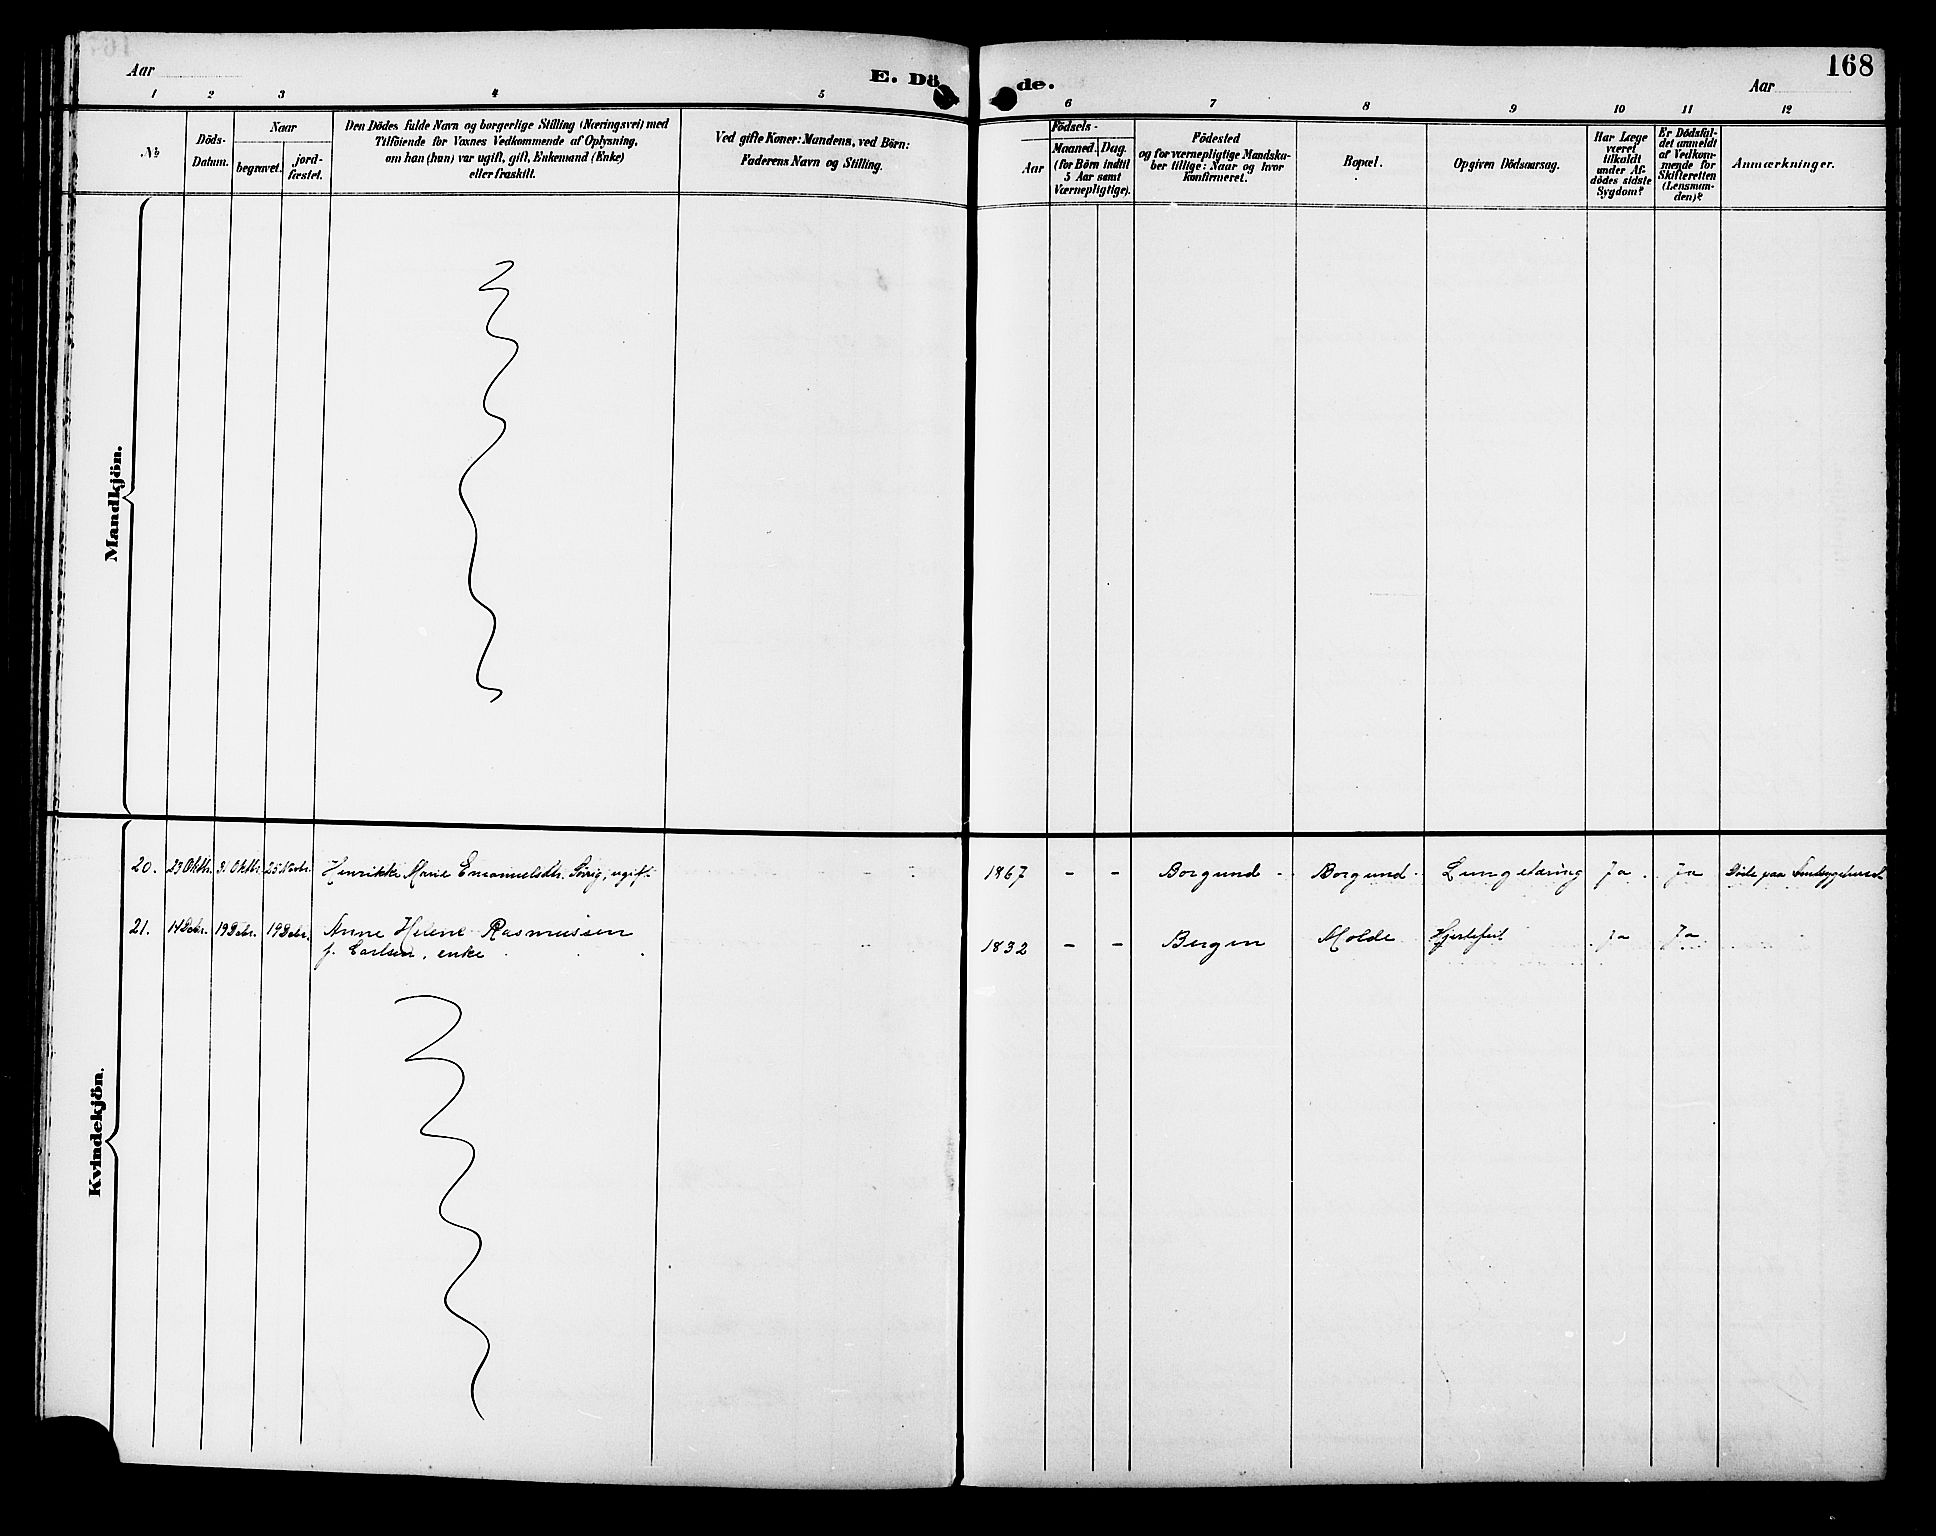 168
Aar
E. Dö
de.
Aar
1 2 3 4 5 6 7 8 9 10 11 12
№
Döds-
Datum.
Naar
begravet.
jord-
fæstet.
Den Dödes fulde Navn og borgerlige Stilling (Næringsvei) med
Tilföiende for Voxnes Vedkommende af Oplysning,
om han (hun) var ugift, gift, Enkemand (Enke)
eller fraskilt.
Ved gifte Koner: Mandens, ved Börn:
Faderens Navn og Stilling.
Födsels-
Aar
Maaned.
Dag.
(for Börn indtil
5 Aar samt
Værnepligtige).
Födested
og for værnepligtige Mandska-
ber tillige: Naar og hvor
konfirmeret.
Bopæl.
Opgiven Dödsaarsag.
Har Læge
været
tilkaldt
under Af-
dödes sidste
Sygdom?
Er Dödsfal-
det anmeldt
af Vedkom-
mende for
Skifteretten
(Lensman-
den)?
Anmærkninger.
Mandkjön.
Kvindekjön.
20. 23 Oktbr. 31 Oktbr. 25 Novbr. Henrikke Marie Emanuelsdtr. ugift 1867 - - Borgund Borgund Lungetæring Ja Ja Döde paa
21. 14 Debr. 19 Debr. 19 Debr. Anne Helene Rasmussen
f. Carlsen, enke 1832 - - Bergen Molde Hjertefeil Ja Ja